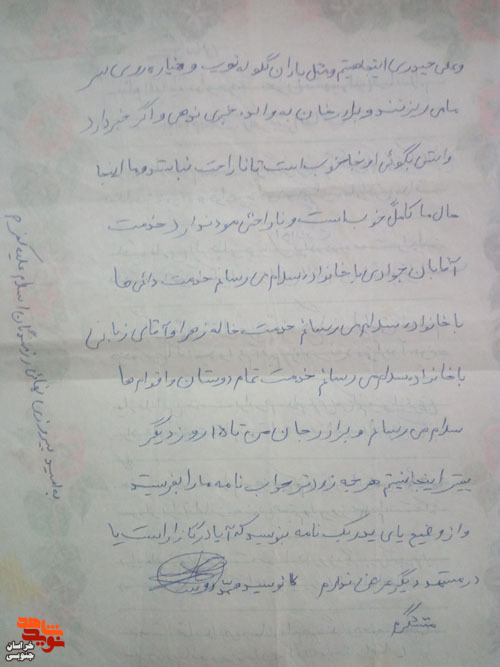 و من حیدری اینجا هستیم و مثل باران گلوله توپ و خمپاره روی سر
ما می ریزند و برادر جان به والده خبری ندهی و اگر خبر دارد
واسش بگوئی اونجا خوب است تا ناراحت نباشد و ما اینجا
حال ما کاملً خوب است و ناراحتی وجود ندارد خدمت
آقایان جوادی با خانواده سلام می رسانم خدمت دائی ها
با خانواده سلام می رسانم خدمت خاله زهرا و آقای
با خانواده سلام می رسانم خدمت تمام دوستان و اقوام ها
سلام می رسانم و برادر جان من تا ۱۵ روز دیگر
بیشتر اینجا نیستم هر چه زودتر جواب نامه ما را بفرستید
و از وضع پای پدر یک نامه بنویسید که آیا در کنار است یا
در مشهد دیگر عرضی ندارم
متشکرم
به امید پیروزی نهائی رزمندگان اسلام علیه کفر
نوید شاهد
خراسان جنوبی